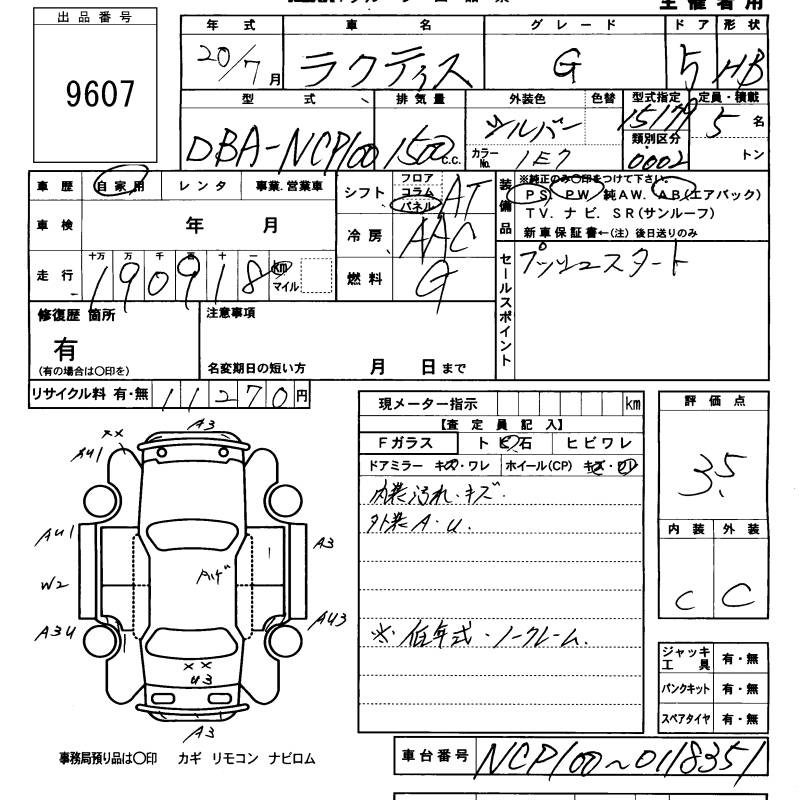 主催者用
出品番号
9607
年式 車名 グレード ドア 形状
20/7月 ラクティス G 5 HB
型式 排気量 外装色 色替 型式指定 定員・積載
DBA-NCP100 1500 C.C. シルバー 15179 5 名
カラーNo. 1E7 類別区分 0002 トン
車歴 自家用 レンタ 事業.営業車
シフト フロア コラム パネル AT
装備品 ※純正のみ〇印をつけて下さい。
PS. PW 純AW. AB(エアバック)
TV. ナビ. SR(サンルーフ)
新車保証書←(注)後日送りのみ
車検 年 月
冷房 AAC
走行 十万 万 千 百 十 一
190918 km マイル
燃料 G
セールスポイント プッシュスタート
修復歴 箇所
有
(有の場合は〇印を)
注意事項
名変期日の短い方 月 日まで
リサイクル料 有・無 11270円
現メーター指示 km
【査定員記入】
Fガラス トビ石 ヒビワレ
ドアミラー キズ・ワレ ホイール(CP) キズ・ワレ
内装汚れ・キズ.
外装A・U.
※低年式・ノークレーム.
評価点
3.5
内装 外装
C C
ジャッキ 工具 有・無
パンクキット 有・無
スペアタイヤ 有・無
A3
××
AU1
AU1
A3
W2
Aハゲ
AU3
A3U
××
U3
A3
事務局預り品は〇印 カギ リモコン ナビロム
車台番号 NCP100~0118351